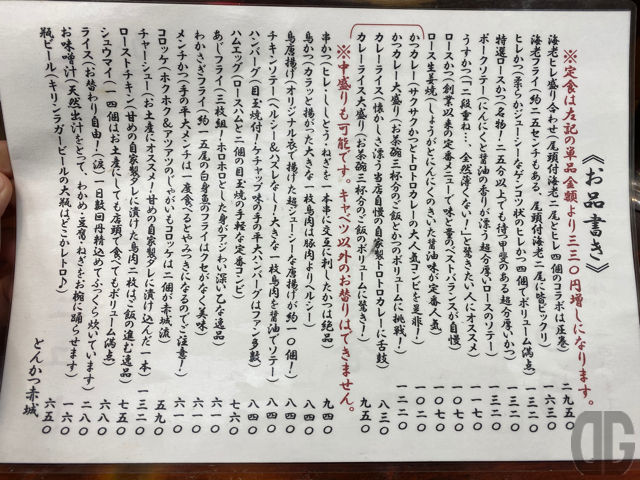 《お品書き》
※定食は左記の単品金額より三三〇円増しになります。
海老ヒレ盛り合わせ（尾頭付海老二尾とヒレ四個のコラボは圧巻） 二九五〇
海老フライ（約二五センチもある、尾頭付海老二尾に皆ビックリ） 一六三〇
ヒレかつ（柔らかジューシーなゲンコツ状のヒレかつ四個でボリューム満点）
特選ロースかつ（名物！二五分以上でも待つ甲斐のある超分厚いかつ） 一三二〇
ポークソテー（にんにくと醤油の香りが漂う超分厚いロースのソテー） 一一七〇
うすかつ（「二段重ね…、全然薄くない！」と驚きたい人にオススメ） 一〇七〇
ロースかつ（創業以来の定番メニューで味と量のベストバランスが自慢） 一〇七〇
ロース生姜焼（しょうがとにんにくのきいた醤油味が定番人気） 一〇七〇
かつカレー（サクサクかつとトロトロカレーの大人気コンビを是非！） 一〇二〇
かつカレー大盛り（お茶碗三杯分のご飯とかつのボリュームに挑戦！） 一二二〇
カレーライス（懐かしさ漂う当店自慢の自家製トロトロカレーに舌鼓）
カレーライス大盛り（お茶碗三杯分のご飯のボリュームに驚き！） 九五〇
※中盛りも可能です。キャベツ以外のお替りはできません。
串かつ（ヒレ・ししとう・ねぎを一本串に交互に刺したかつは絶品） 九四〇
鳥かつ（カラッと揚がった大きな一枚鳥肉は豚肉よりヘルシー） 八四〇
鳥唐揚げ（オリジナル衣で揚げた超ジューシーな唐揚が約一〇個！） 八四〇
チキンソテー（ヘルシー＆ハズレなし！大きな一枚鳥肉を醤油でソテー） 八四〇
ハンバーグ（目玉焼付！ケチャップ味の手の平大ハンバーグはファン多数） 八四〇
ハムエッグ（ロースハムと二個の目玉焼の手軽な定番コンビ） 七六〇
あじフライ（三枚組！ホロホロとした身がアンわい深い乙な逸品） 六一〇
わかさぎフライ（約一五尾の白身魚のフライはクセがなく美味） 六一〇
メンチかつ（手の平大メンチは一度食べるとやみつきになるのでご注意！） 六一〇
コロッケ（ホクホク＆アツアツのじゃがいもコロッケは二個が赤城流） 五九〇
チャーシュー（お土産にオススメ！甘めの自家製タレに漬け込んだ一本） 一三二〇
ローストチキン（甘めの自家製タレに漬けた鳥肉二枚はご飯の進む逸品） 六五〇
シュウマイ（一四個はお土産にしても店頭で食べてもボリューム満点） 六五〇
ライス（お替わり自由！（涙）一日数回丹精込めてふっくら炊いています） 二八〇
お味噌汁（天然出汁をとって、わかめ・豆腐・ねぎをお椀に踊らせます） 一六〇
瓶ビール（キリンラガービールの大瓶はどこかレトロ♪） 六五〇
とんかつ赤城
DG